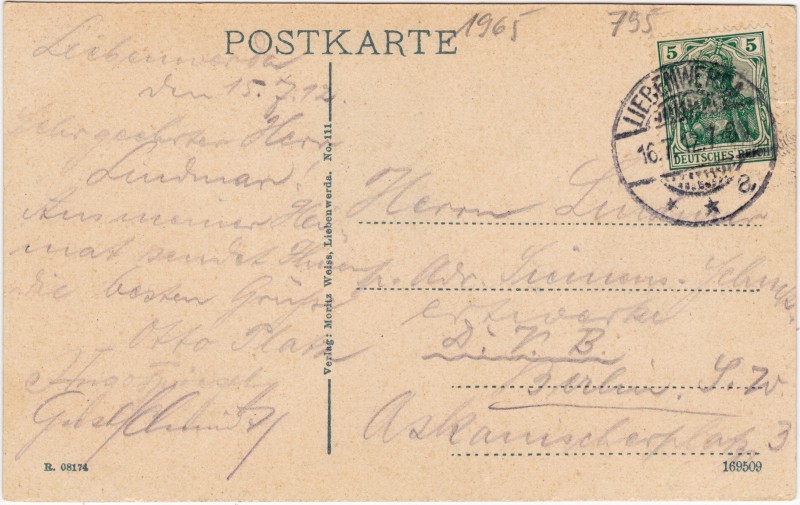 1965 795
POSTKARTE
5 5
DEUTSCHES REICH
LIEBENWERDA
16.7.12.7-8
* * a
Liebenwerda
den 15.7.12
Sehr geehrter Herr
Lindmar!
Aus meiner Hei
mat sendet Ihnen
die besten Grüße
Otto
Gust
Verlag: Moritz Weiss, Liebenwerda. No. 111
Herrn
p. Adr. Siemens-Schuck-
ertwerke
Berlin. S.W.
Askanischerplatz 3
R. 08174
169509